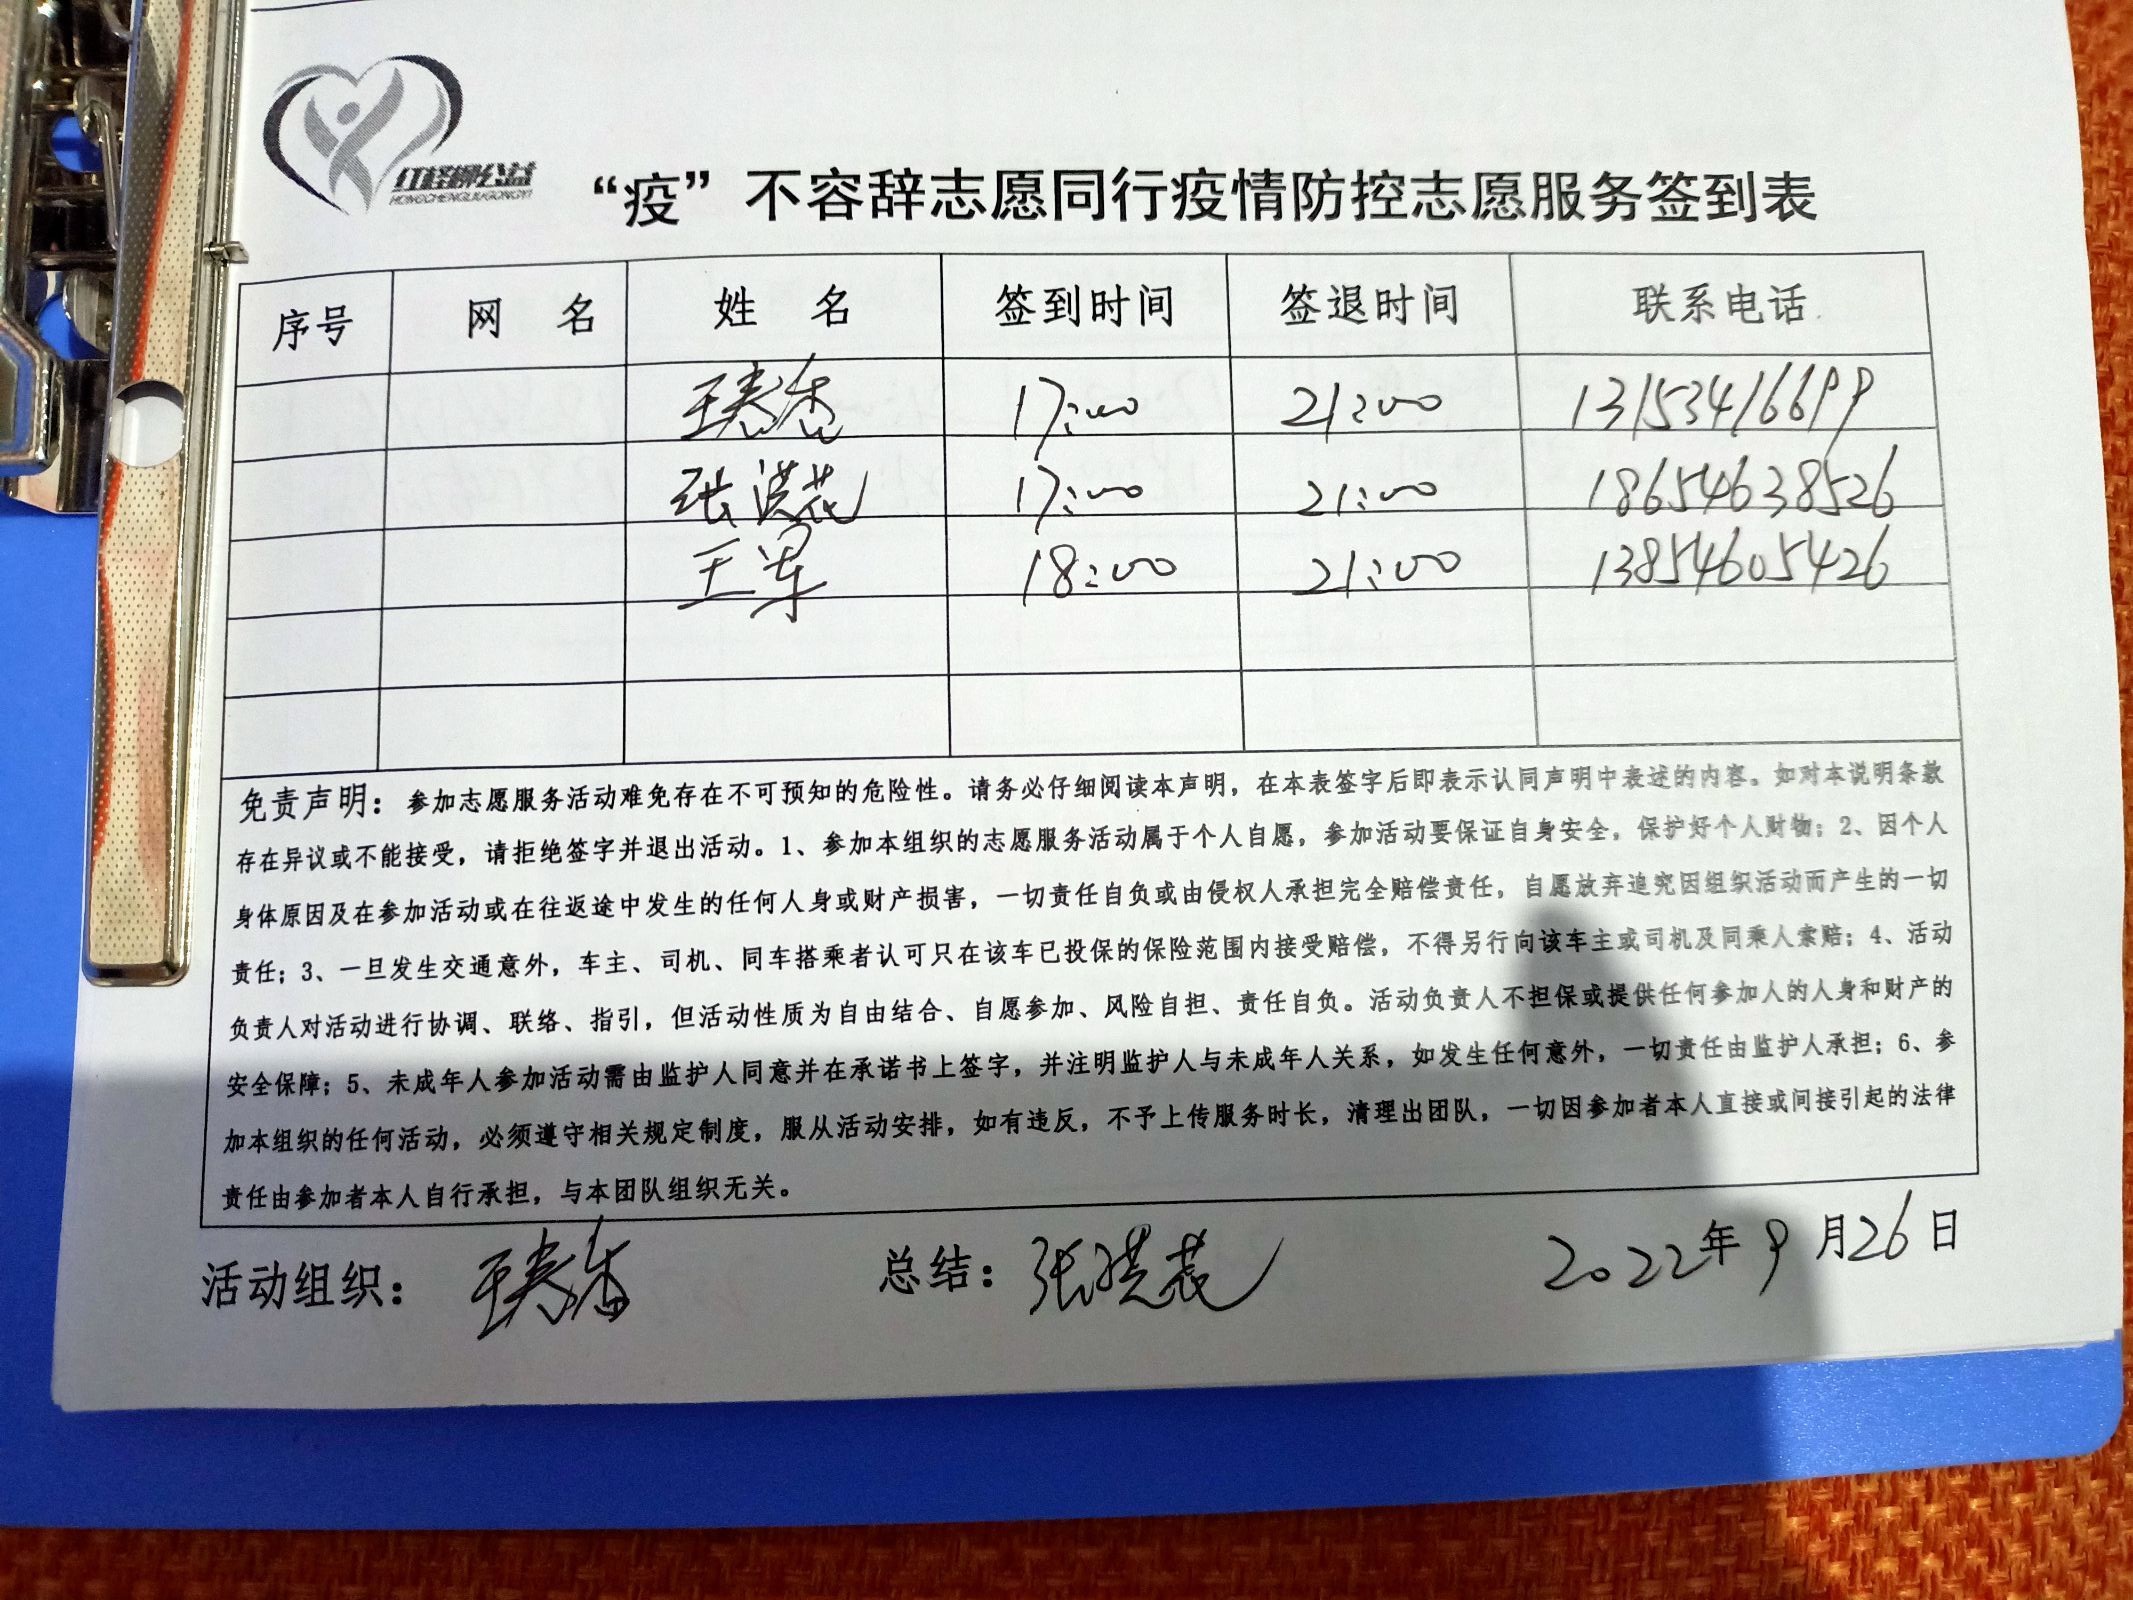 红橙柳公益
HONGCHENGLIUGONGYI
“疫” 不容辞志愿同行疫情防控志愿服务签到表
序号 网 名 姓 名 签到时间 签退时间 联系电话
17:00 21:00 13153416699
张洪花 17:00 21:00 18654638526
王军 18:00 21:00 13854605426
免责声明：参加志愿服务活动难免存在不可预知的危险性。请务必仔细阅读本声明，在本表签字后即表示认同声明中表述的内容。如对本说明条款
存在异议或不能接受，请拒绝签字并退出活动。1、参加本组织的志愿服务活动属于个人自愿，参加活动要保证自身安全，保护好个人财物；2、因个人
身体原因及在参加活动或在往返途中发生的任何人身或财产损害，一切责任自负或由侵权人承担完全赔偿责任，自愿放弃追究因组织活动而产生的一切
责任；3、一旦发生交通意外，车主、司机、同车搭乘者认可只在该车已投保的保险范围内接受赔偿，不得另行向该车主或司机及同乘人索赔；4、活动
负责人对活动进行协调、联络、指引，但活动性质为自由结合、自愿参加、风险自担、责任自负。活动负责人不担保或提供任何参加人的人身和财产的
安全保障；5、未成年人参加活动需由监护人同意并在承诺书上签字，并注明监护人与未成年人关系，如发生任何意外，一切责任由监护人承担；6、参
加本组织的任何活动，必须遵守相关规定制度，服从活动安排，如有违反，不予上传服务时长，清理出团队，一切因参加者本人直接或间接引起的法律
责任由参加者本人自行承担，与本团队组织无关。
活动组织： 总结：张洪花 2022年9月26日